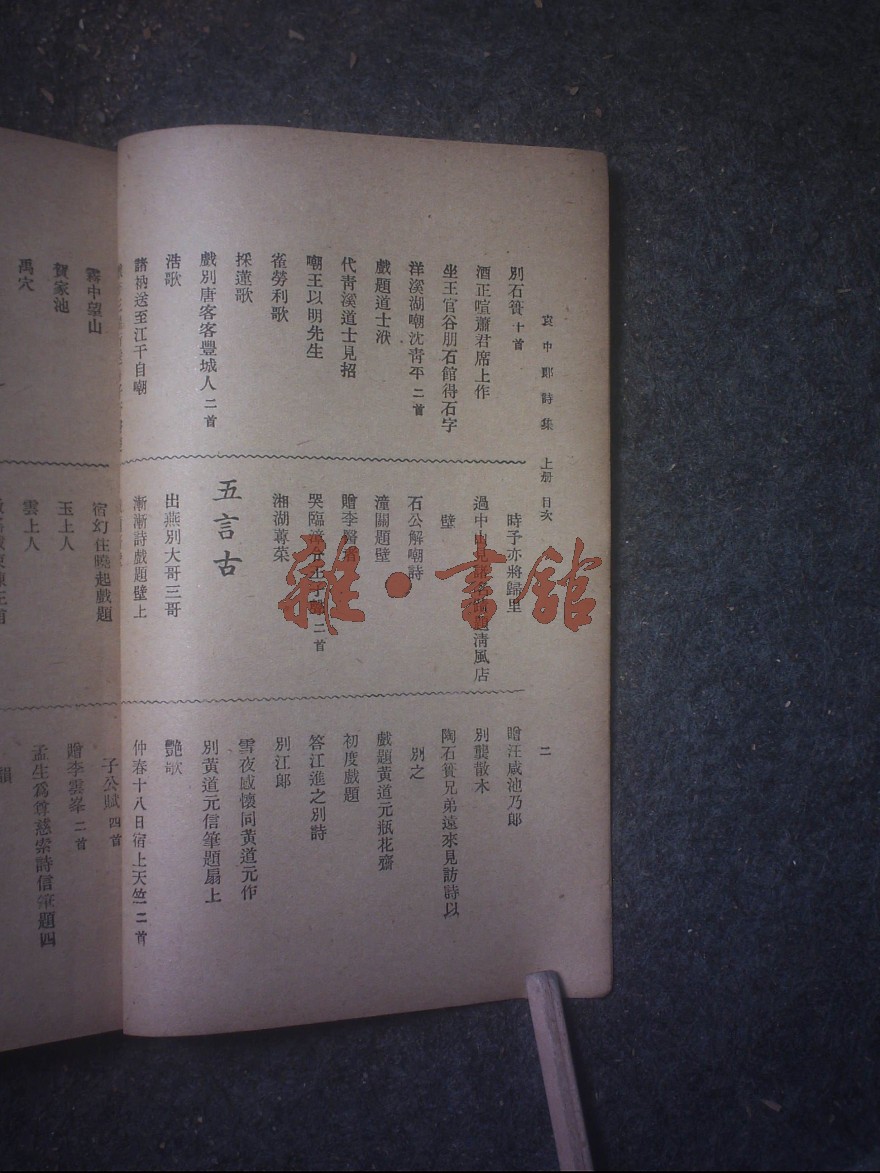 袁中郎詩集 上册 目次
二
別石簣 十首
酒正喧蕭君席上作
坐王官谷朋石館得石字
洋溪湖嘲沈靑平 二首
戲題道士洑
代靑溪道士見招
嘲王以明先生
雀勞利歌
採蓮歌
戲別唐客客豐城人 二首
浩歌
諸衲送至江干自嘲
時予亦將歸里
過中山見 淸風店
壁
石公解嘲詩
潼關題壁
贈李醫者
哭臨漳令王子聲 二首
湘湖蓴菜
五言古
出燕別大哥三哥
漸漸詩戲題壁上
嘲汪咸池乃郞
別龔散木
陶石簣兄弟遠來見訪詩以
別之
戲題黃道元瓶花齋
初度戲題
答江進之別詩
別江郞
雪夜感懷同黃道元作
別黃道元信筆題扇上
艷歌
仲春十八日宿上天竺 二首
霧中望山
賀家池
禹穴
宿幻住曉起戲題
玉上人
雲上人
子公賦 四首
贈李雲峯 二首
孟生爲尊慈索詩信筆題四
韻
雜·書舘